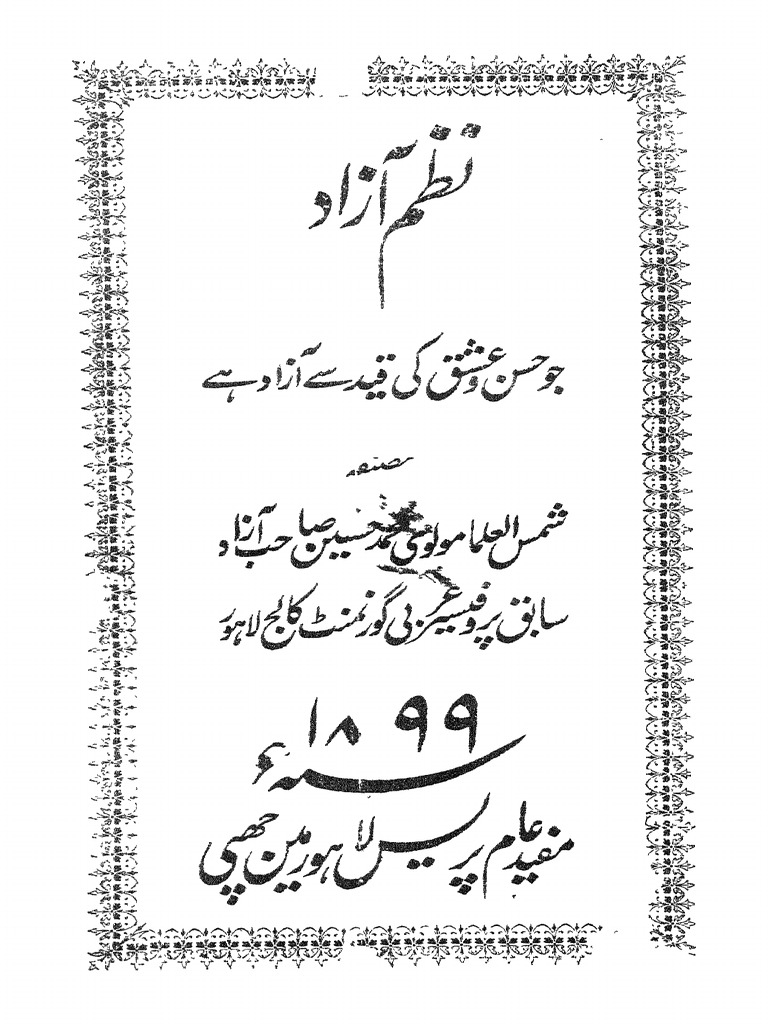 نظم آزاد
جو حسن و عشق کی قید سے آزاد ہے
مصنفہ
شمس العلما مولوی محمد حسین صاحب آزاد
سابق پروفیسر عربی گورنمنٹ کالج لاہور
۱۸۹۹
سنہ ء
مفید عام پریس لاہور مین چھپی